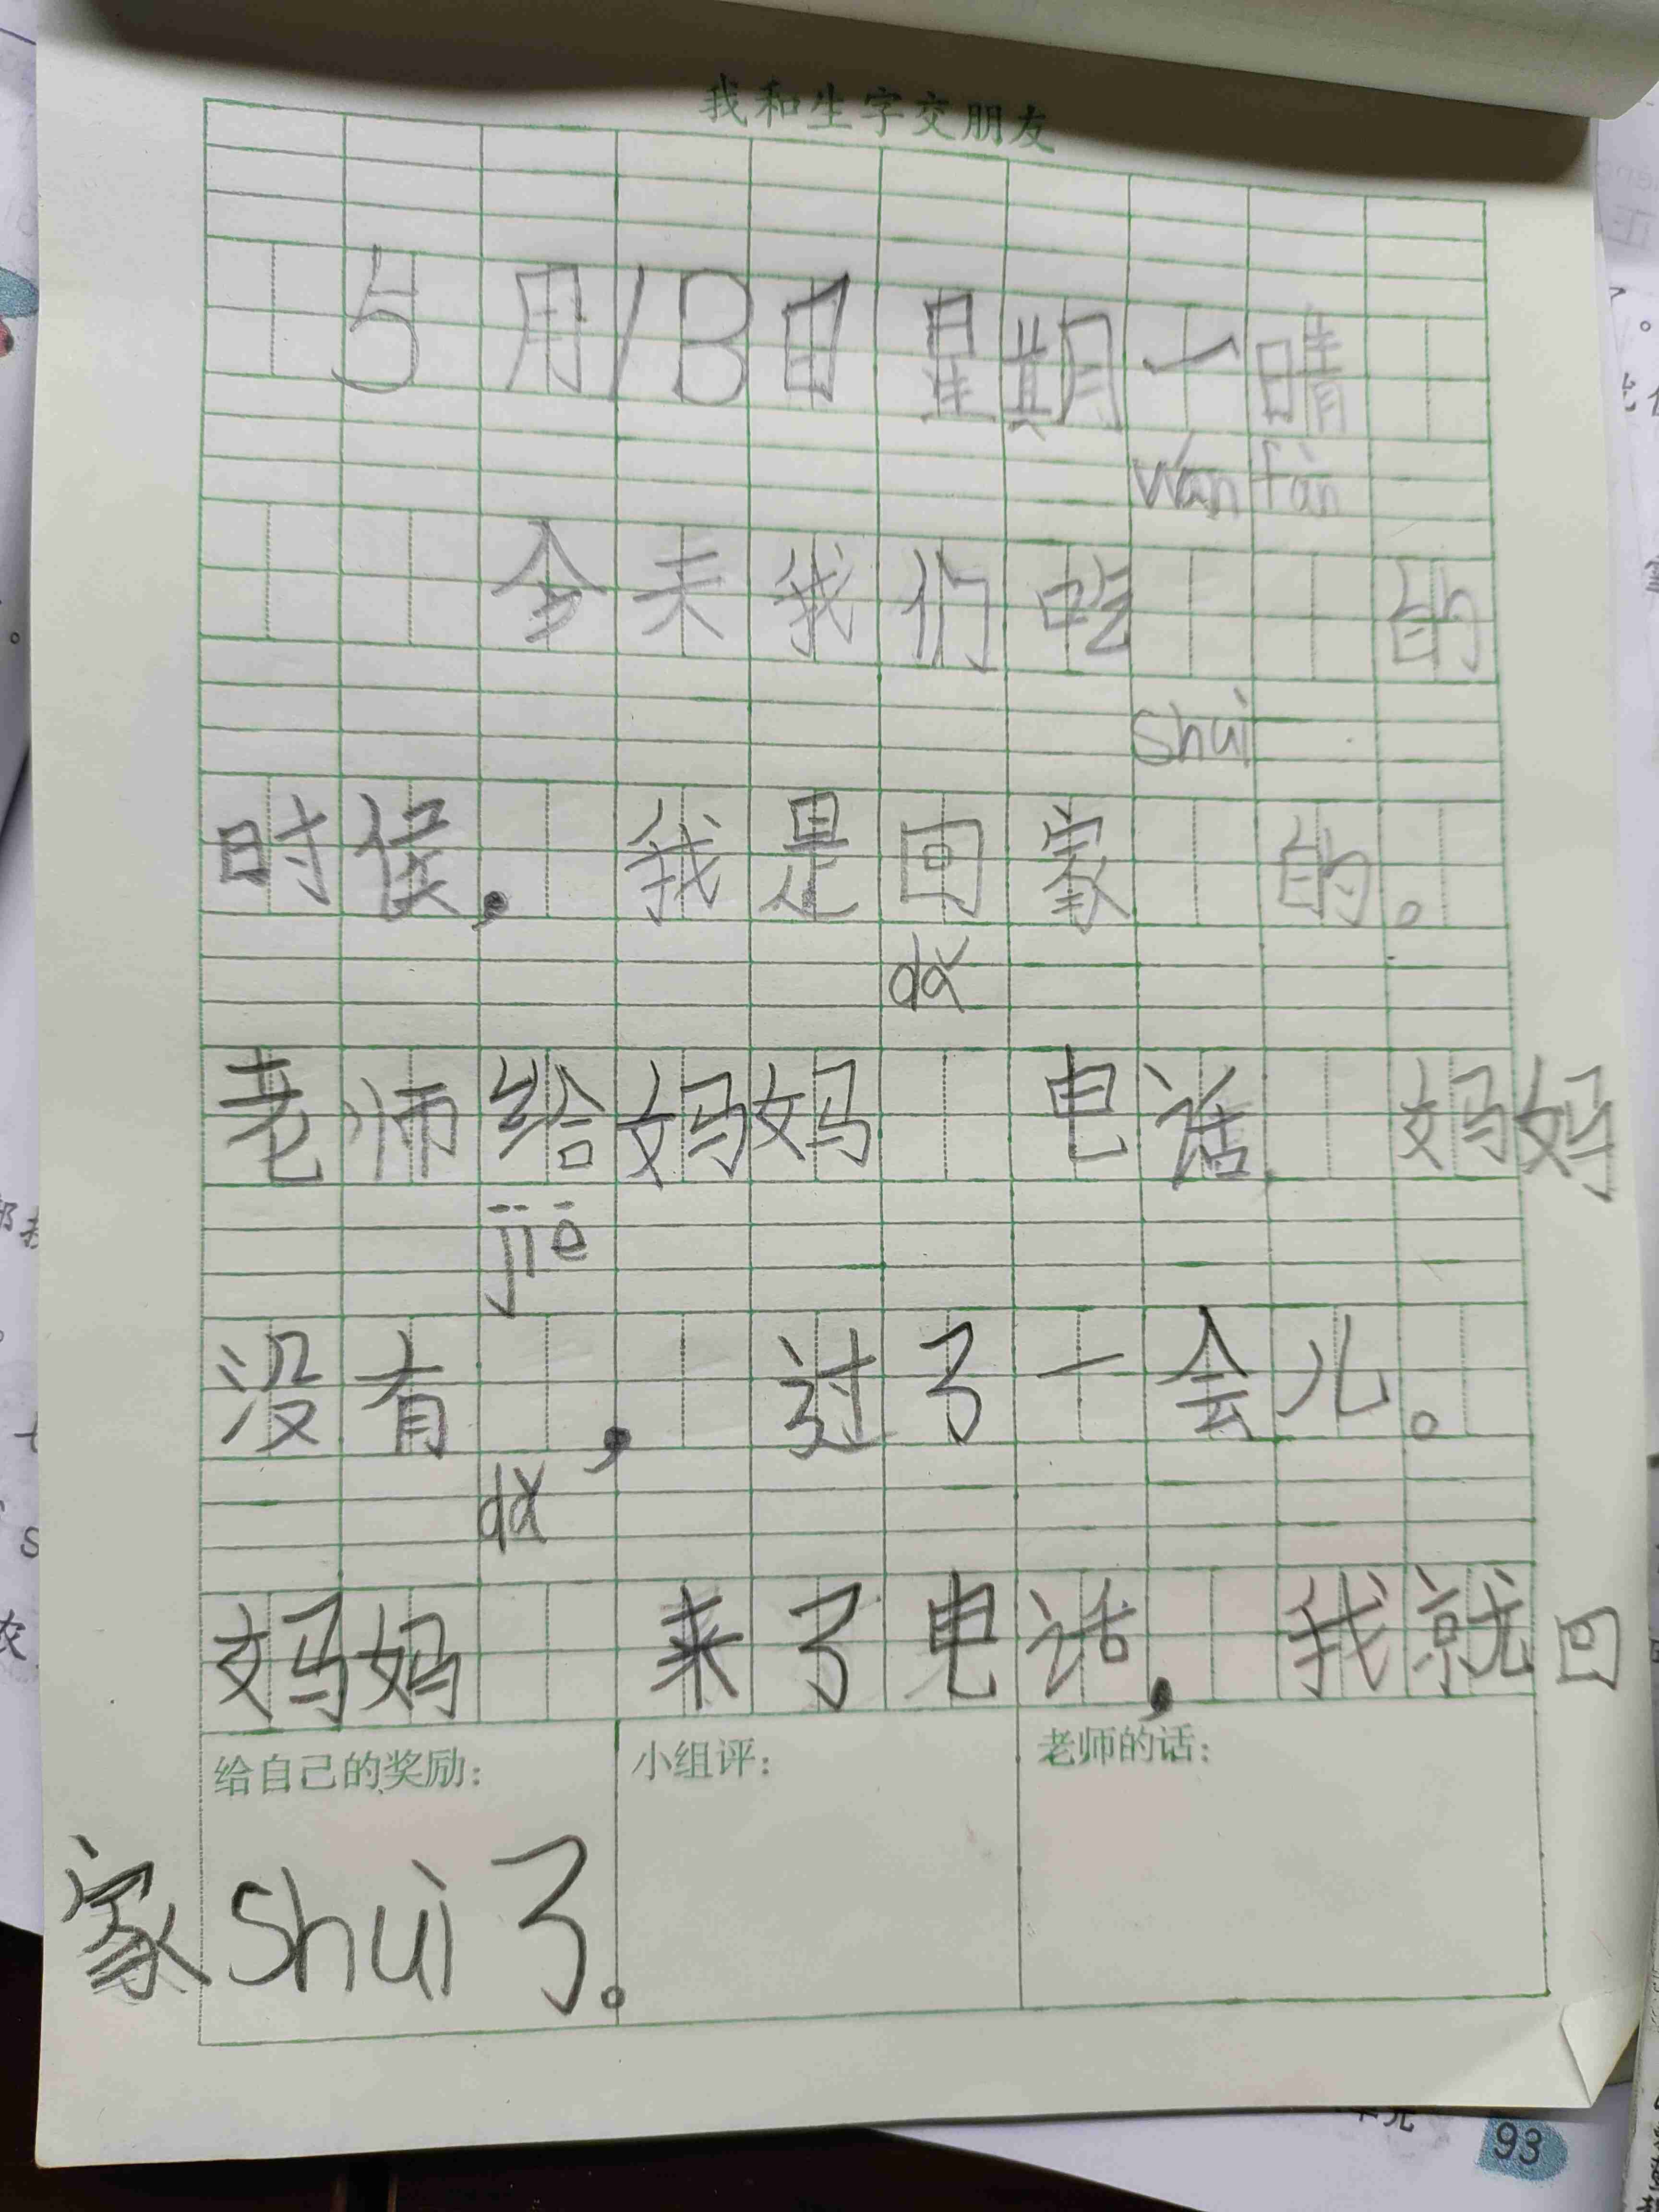 我和生字交朋友
5月13日 星期一晴
wán fàn
今天我们吃 的
shuì
时候，我是回家 的。
dǎ
老师给妈妈 电话 妈妈
jiē
没有 ，过了一会儿。
dǎ
妈妈 来了电话，我就回
给自己的奖励： 小组评： 老师的话：
家shuì了。
93